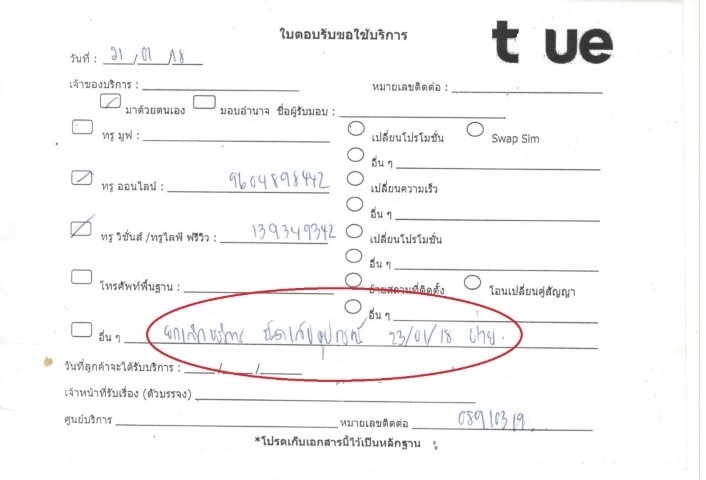 ใบตอบรับขอใช้บริการ
t ue
วันที่ : 21 / 01 / 18
เจ้าของบริการ : หมายเลขติดต่อ :
มาด้วยตนเอง มอบอำนาจ ชื่อผู้รับมอบ :
ทรู มูฟ : เปลี่ยนโปรโมชั่น Swap Sim
อื่น ๆ
ทรู ออนไลน์ : 9604898442 เปลี่ยนความเร็ว
อื่น ๆ
ทรู วิชั่นส์ /ทรูไลฟ์ ฟรีวิว : 139349342 เปลี่ยนโปรโมชั่น
อื่น ๆ
โทรศัพท์พื้นฐาน : ย้ายสถานที่ติดตั้ง โอนเปลี่ยนคู่สัญญา
อื่น ๆ
อื่น ๆ ยกเลิกบริการ นัดเก็บอุปกรณ์ 23/01/18 บ่าย.
วันที่ลูกค้าจะได้รับบริการ : / /
เจ้าหน้าที่รับเรื่อง (ตัวบรรจง)
ศูนย์บริการ หมายเลขติดต่อ 08910319
*โปรดเก็บเอกสารนี้ไว้เป็นหลักฐาน